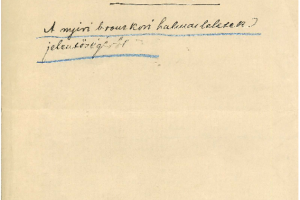 A nyiri bronzkori halmazleletek
jelentőségéről